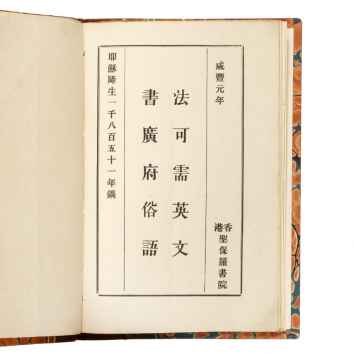 咸豐元年
香港聖保羅書院
法可需英文
書廣府俗語
耶穌降生一千八百五十一年鐫